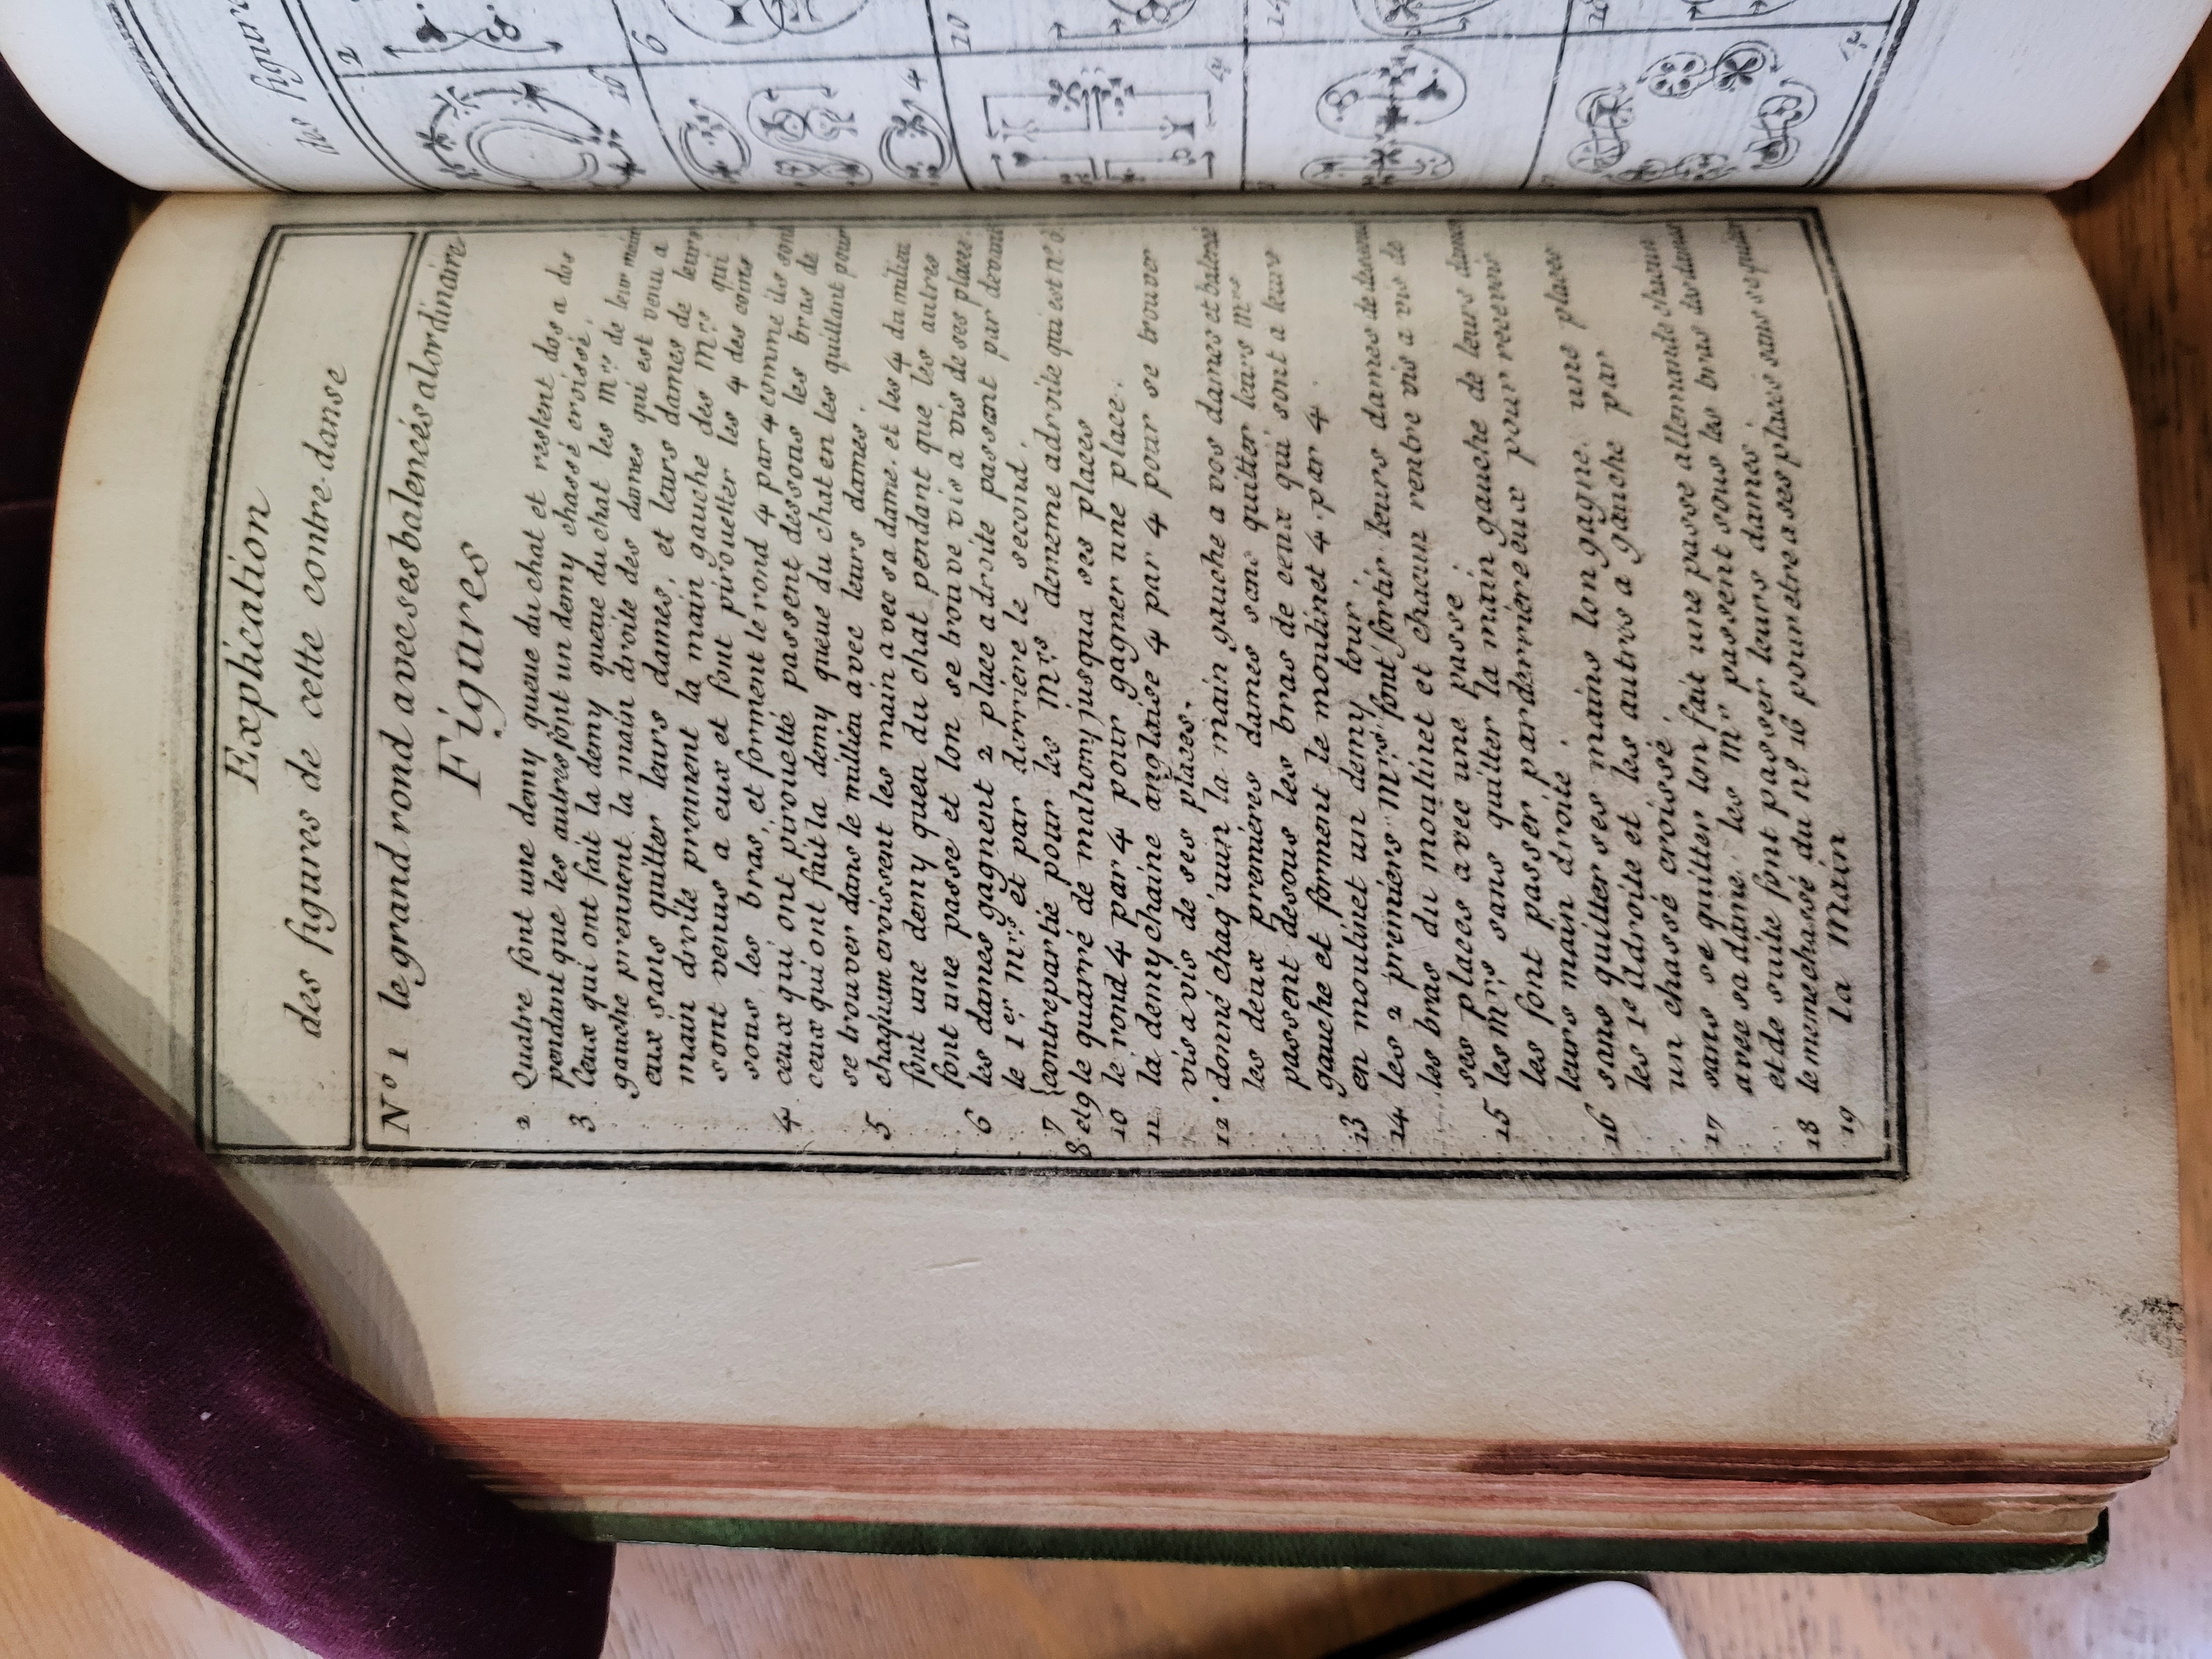 Explication
des figures de cette contre danse
N° 1 le grand rond avec ses balencés alordinaire
Figures
2 Quatre font une demy queue du chat et restent dos a dos
pendant que les autres font un demy chassé croissé.
3 Ceux qui ont fait la demy queue du chat les Mrs de leur main
gauche prennent la main droite des dames qui est venu a
eux sans quitter leurs dames, et leurs dames de leurs
main droite prennent la main gauche des Mrs qui
sont venus a eux et font pirouetter les 4 des coins
sous les bras, et forment le rond 4 par 4 comme ils sont
4 ceux qui ont pirouetté passent dessous les bras de
ceux qui ont fait la demy queue du chat en les quittant pour
se trouver dans le milieu avec leurs dames.
5 chaqu'un croissent les main avec sa dame. et les 4 du milieu
font une demy queu du chat pendant que les autres
font une passe et lon se trouve vis a vis de ses places.
6 les dames gagnent 2 place a droite passant par devant
le 1er Mrs et par derriere le second.
7 contrepartie pour les Mrs dememe adroite qui est n°
8 et 9 le quarré de mahony jusqua ses places
10 le rond 4 par 4 pour gagner une place.
11 la demy chaine anglaise 4 par 4 pour se trouver
vis a vis de ses places.
12 donné chaq'uun la main gauche a vos dames et balersé
les deux premieres dames sans quitter leurs Mrs
passent dessous les bras de ceux qui sont a leurs
gauche et forment le moulinet 4 par 4.
13 en moulinet un demy tour
14 les 2 premiers Mrs font sortir leurs dames de dessous
les bras du moulinet et chacun rentre vis a vis de
ses places avec une passe.
15 les Mrs sans quitter la main gauche de leurs dames
les font passer par derriere eux pour revenir
leurs main droite.
16 sans quitter ses mains lon gagne une places
les 1e adroite et les autres a gauche par
un chassé croissé
17 sans se quitter lon fait une passe allemande chacun
avec sa dame. les Mrs passent sous les bras des dames
et de suite font passer leurs dames.
18 le meme chassé du n° 16 pour être a ses places sans se quitter
19 la Main
des figures
2
6
10
14
16
4